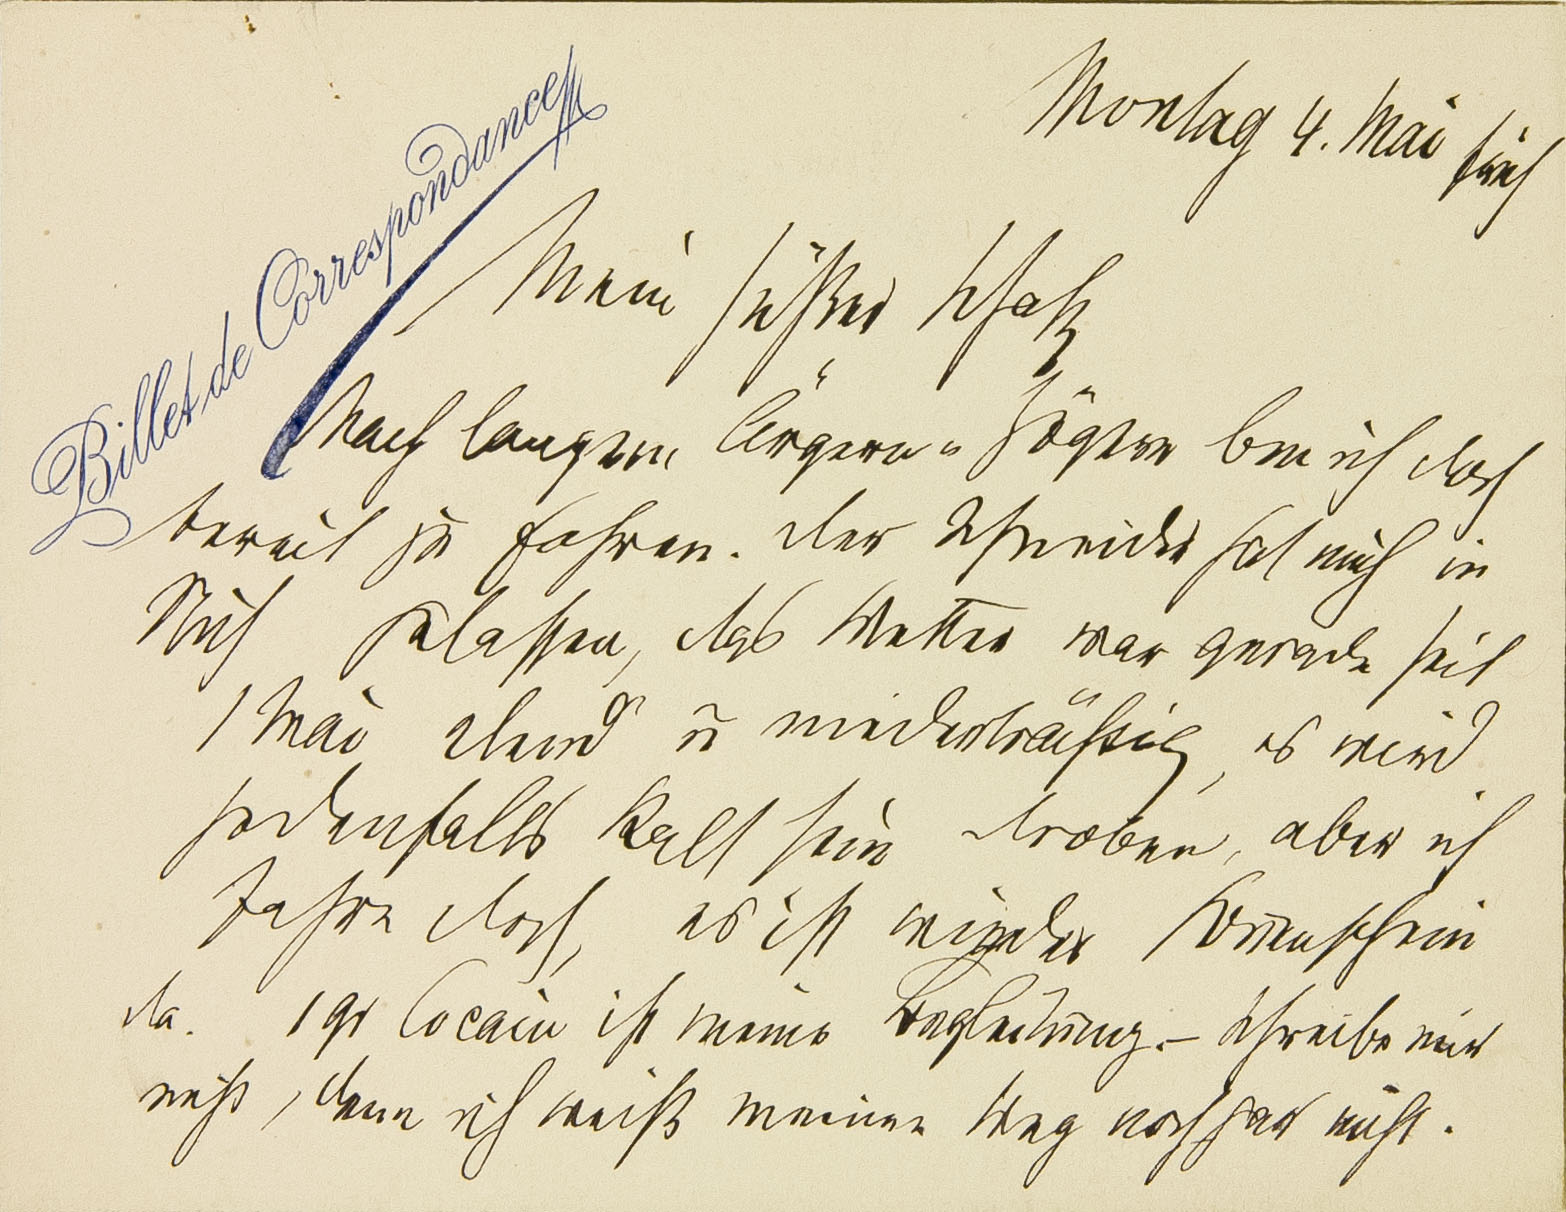 Billet de Correspondance
Montag 4. Mai früh
Mein süßer Schatz
Nach langem Ärgern u Zögern bin ich doch
bereit zu fahren. Der Schneider hat mich in
Stich gelassen, das Wetter war gerade seit
1 Mai elend u niederträchtig, es wird
jedenfalls kalt sein droben, aber ich
fahre doch, es ist wieder Sonnenschein
da. 1 gr Cocain ist meine Begleitung. – Schreibe mir
nicht, denn ich weiß meinen Weg noch gar nicht.